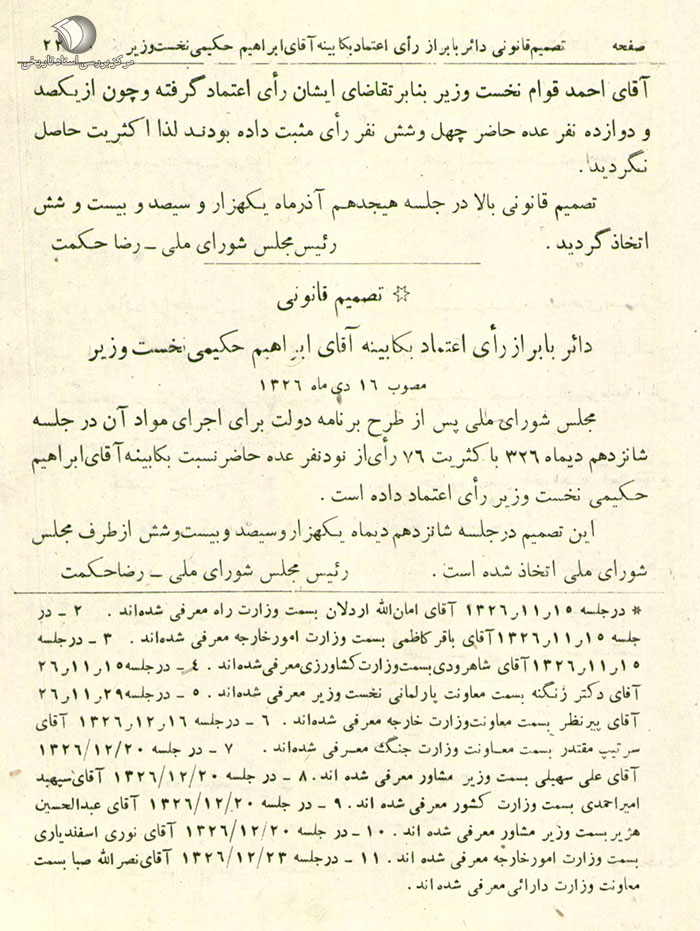 صفحه تصمیم قانونی دائر بابراز رأی اعتماد بکابینه آقای ابراهیم حکیمی نخست وزیر ۲۲
مرکز بررسی اسناد تاریخی
آقای احمد قوام نخست وزیر بنابر تقاضای ایشان رأی اعتماد گرفته وچون از یکصد
و دوازده نفر عده حاضر چهل وشش نفر رأی مثبت داده بودند لذا اکثریت حاصل
نگردید.
تصمیم قانونی بالا در جلسه هیجدهم آذرماه یکهزار و سیصد و بیست و شش
اتخاذ گردید. رئیس مجلس شورای ملی ــ رضا حکمت
☆ تصمیم قانونی
دائر بابراز رأی اعتماد بکابینه آقای ابراهیم حکیمی نخست وزیر
مصوب ۱۶ دی ماه ۱۳۲۶
مجلس شورای ملی پس از طرح برنامه دولت برای اجرای مواد آن در جلسه
شانزدهم دیماه ۳۲۶ باکثریت ۷۶ رأی از نود نفر عده حاضر نسبت بکابینه آقای ابراهیم
حکیمی نخست وزیر رأی اعتماد داده است.
این تصمیم درجلسه شانزدهم دیماه یکهزار وسیصد وبیست وشش ازطرف مجلس
شورای ملی اتخاذ شده است. رئیس مجلس شورای ملی ــ رضاحکمت
* درجلسه ۱۵ر۱۱ر۱۳۲۶ آقای امان‌الله اردلان بسمت وزارت راه معرفی شده‌اند. ۲ ـ در
جلسه ۱۵ر۱۱ر۱۳۲۶ آقای باقر کاظمی بسمت وزارت امورخارجه معرفی شده‌اند. ۳ ـ درجلسه
۱۵ر۱۱ر۱۳۲۶ آقای شاهرودی بسمت وزارت کشاورزی معرفی شده‌اند. ٤ ـ درجلسه ۱۵ر۱۱ر۲۶
آقای دکتر زنگنه بسمت معاونت پارلمانی نخست وزیر معرفی شده‌اند. ۵ ـ درجلسه ۲۹ر۱۱ر۲۶
آقای پیرنظر بسمت معاونت وزارت خارجه معرفی شده‌اند. ۶ ـ درجلسه ۱۶ر۱۲ر۱۳۲۶ آقای
سرتیپ مقتدر بسمت معاونت وزارت جنگ معرفی شده‌اند. ۷ ـ در جلسه ۱۳۲۶/۱۲/۲۰
آقای علی سهیلی بسمت وزیر مشاور معرفی شده اند. ۸ ـ در جلسه ۱۳۲۶/۱۲/۲۰ آقای سپهبد
امیراحمدی بسمت وزارت کشور معرفی شده اند. ۹ ـ در جلسه ۱۳۲۶/۱۲/۲۰ آقای عبدالحسین
هژیر بسمت وزیر مشاور معرفی شده اند. ۱۰ ـ در جلسه ۱۳۲۶/۱۲/۲۰ آقای نوری اسفندیاری
بسمت وزارت امورخارجه معرفی شده اند. ۱۱ ـ درجلسه ۱۳۲۶/۱۲/۲۳ آقای نصرالله صبا بسمت
معاونت وزارت دارائی معرفی شده اند.